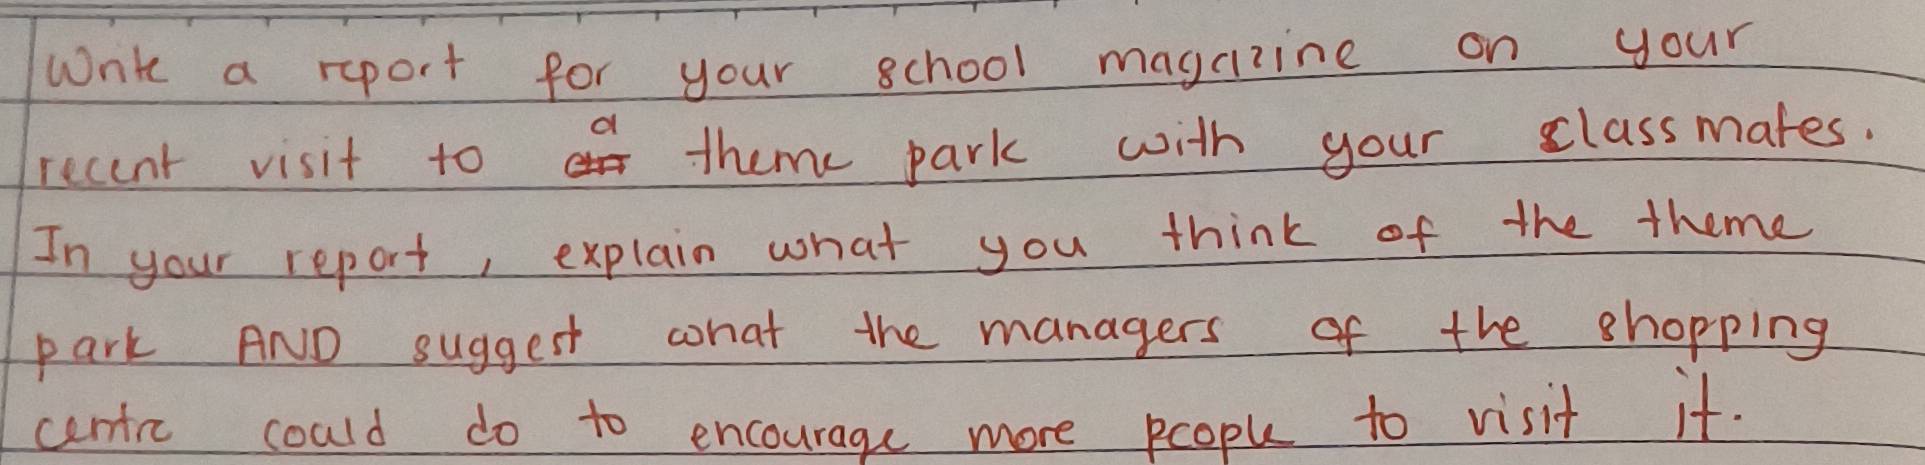 Write a report for your school magazine on your
recent visit to a theme park with your classmates.
In your report, explain what you think of the theme
park AND suggest what the managers of the shopping
centre could do to encourage more people to visit it.